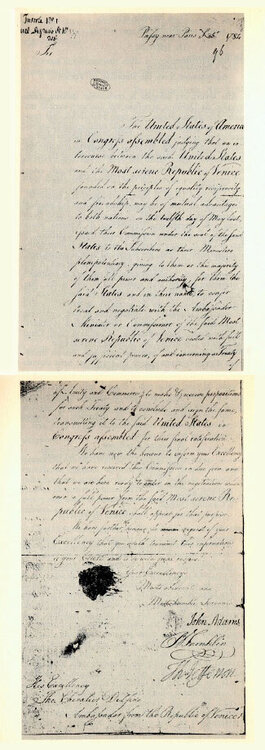 Inserta Nº 1
Passy near Paris
1784
Sir
The United States of America
in Congress assembled judging that an in-
tercourse between the said United States
and the Most serene Republic of Venice
founded on the principles of equality reciprocity
and friendship may be of mutual advantage
to both nations on the twelfth day of May last,
issued their Commission under the seal of the said
States to the Subscribers as their Ministers
plenipotentiary giving to them or the majority
of them full power and authority, for them the
said States and in their name to confer
treat and negotiate with the Ambassador
Minister or Commissioner of the said Most
serene Republic of Venice vested with full
and sufficient powers, of and concerning a Treaty
of Amity and Commerce to make & receive propositions
for such Treaty and to conclude and sign the same,
transmitting it to the said United States in
Congress assembled for their final ratification.
We have now the honour to inform your Excellency
that we have received this Commission in due form and
that we are here ready to enter on the negotiation when-
ever a full power from the said Most serene Re-
public of Venice shall appear for that purpose.
We have further to request of your
Excellency that you would transmit this information
to your Court and to be with great respect
Your Excellency's
Most obedient and
Most humble Servants
John Adams
B Franklin
Th Jefferson
His Excellency
The Chevalier Delfino
Ambassador from the Republic of Venice